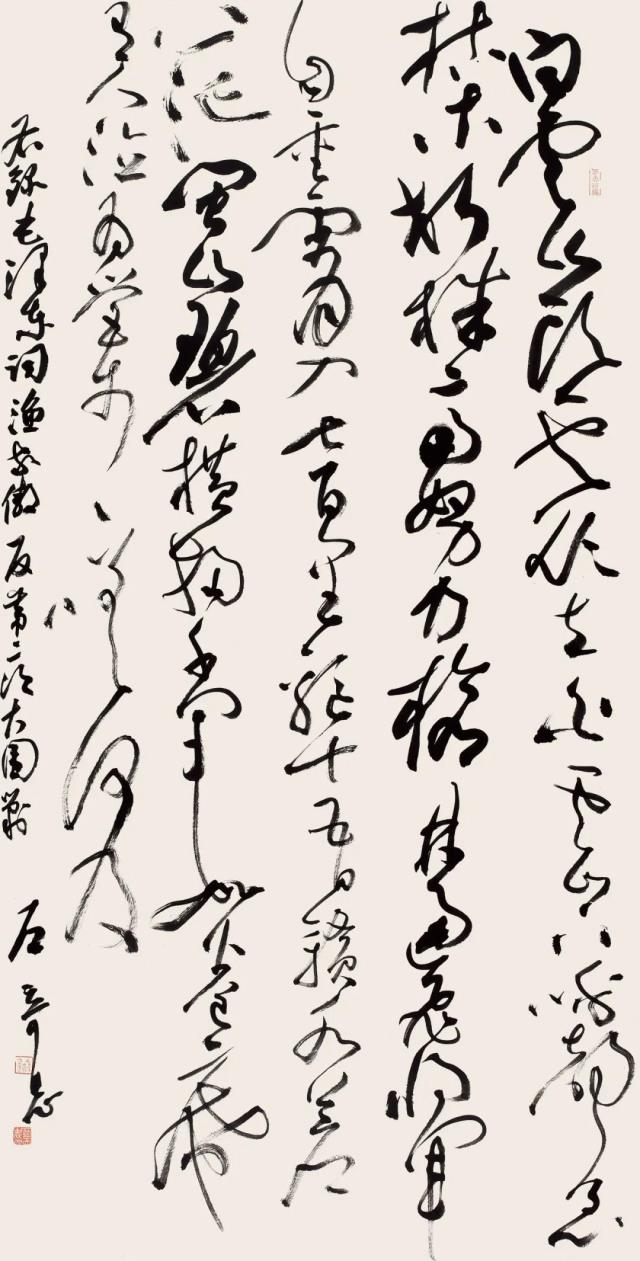 白云山头云欲立白云山下呼声急
枯木朽株齐努力枪林逼飞将军
自重霄入七百里驱十五日赣水苍
茫闽山碧横扫千军如卷席
有人泣为营步步嗟何及
右录毛泽东词渔家傲反第二次大围剿 石奇